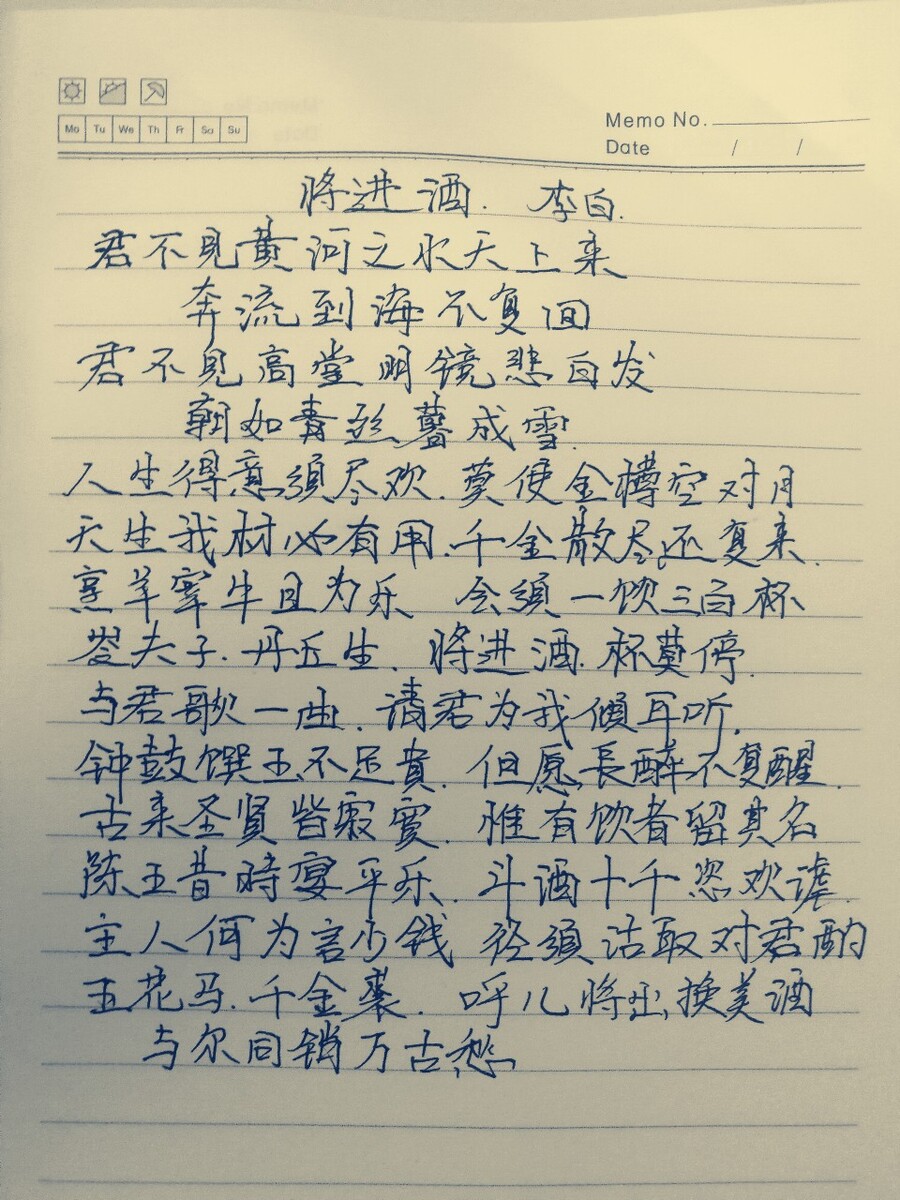 Mo Tu We Th Fr Sa Su
Memo No.
Date / /
将进酒. 李白.
君不见黄河之水天上来
奔流到海不复回
君不见高堂明镜悲白发
朝如青丝暮成雪.
人生得意須尽欢.莫使金樽空对月
天生我材必有用.千金散尽还复来.
烹羊宰牛且为乐 会須一饮三百杯
岑夫子.丹丘生.将进酒.杯莫停.
与君歌一曲.请君为我傾耳听.
钟鼓馔玉不足貴.但愿長醉不复醒.
古来圣贤皆寂寞.惟有饮者留其名
陈王昔時宴平乐.斗酒十千恣欢谑.
主人何为言少钱 径須沽取对君酌
五花马.千金裘.呼儿将出换美酒
与尔同销万古愁